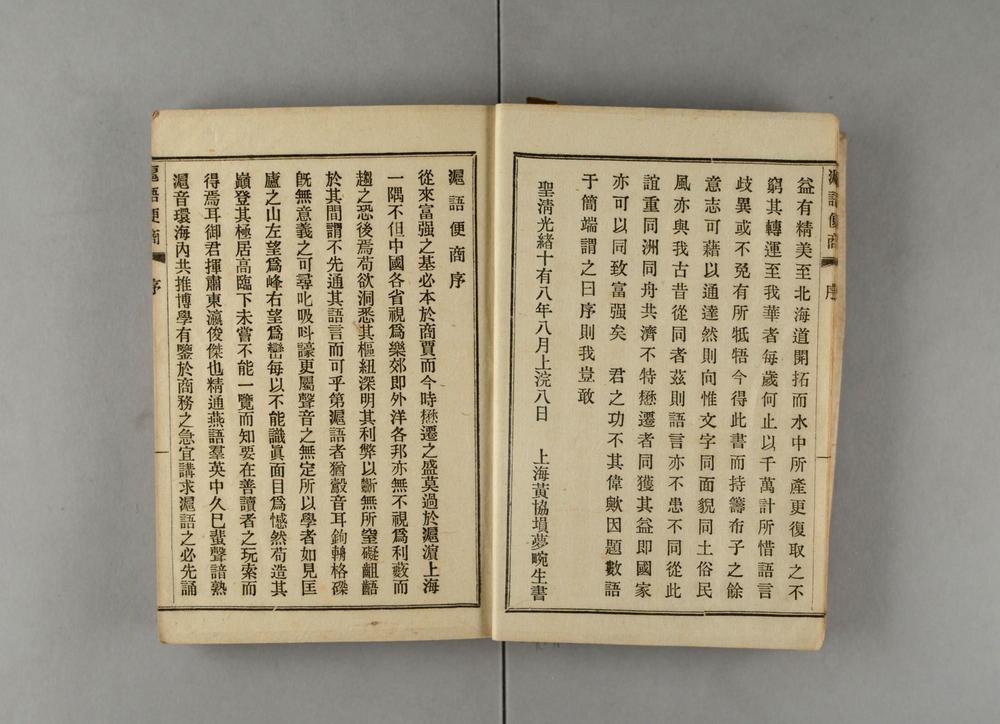 滬語便商　序
益有精美至北海道開拓而水中所產更復取之不
窮其轉運至我華者每歲何止以千萬計所惜語言
歧異或不免有所牴牾今得此書而持籌布子之餘
意志可藉以通達然則向惟文字同面貌同土俗民
風亦與我古昔從同者茲則語言亦不患不同從此
誼重同洲同舟共濟不特懋遷者同獲其益即國家
亦可以同致富强矣　君之功不其偉歟因題數語
于簡端謂之曰序則我豈敢
聖淸光緒十有八年八月上浣八日　上海黃協塤夢畹生書
滬語便商序
從來富强之基必本於商賈而今時懋遷之盛莫過於滬濵上海
一隅不但中國各省視爲樂郊即外洋各邦亦無不視爲利藪而
趨之恐後焉苟欲洞悉其樞紐深明其利弊以斷無所窒礙齟齬
於其間謂不先通其語言而可乎第滬語者猶鷇音耳鉤輈格磔
旣無意義之可尋叱吸呌譹更屬聲音之無定所以學者如見匡
廬之山左望爲峰右望爲巒每以不能識眞面目爲憾然苟造其
巔登其極居高臨下未嘗不能一覽而知要在善讀者之玩索而
得焉耳御君揮肅東瀛俊傑也精通燕語羣英中久已蜚聲諳熟
滬音環海內共推博學有鑒於商務之急宜講求滬語之必先誦
滬語便商　序